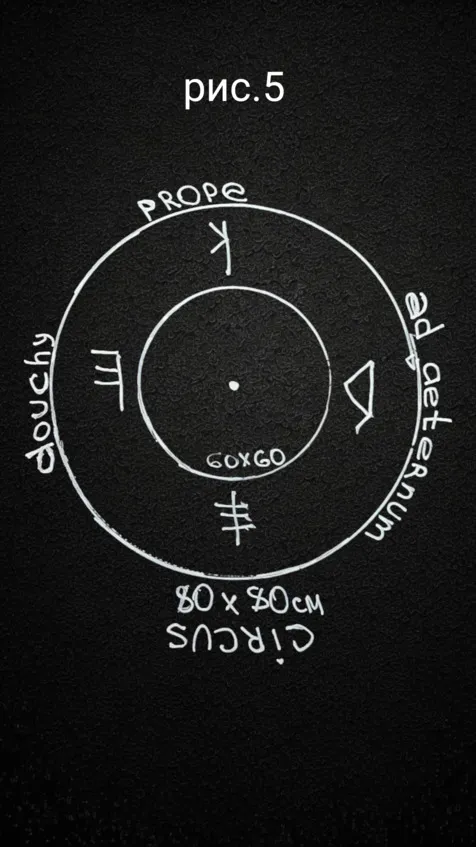 рис.5
PROPE
K
ad aeternum
douchy
60x60
80 x 80см
CIRCUS